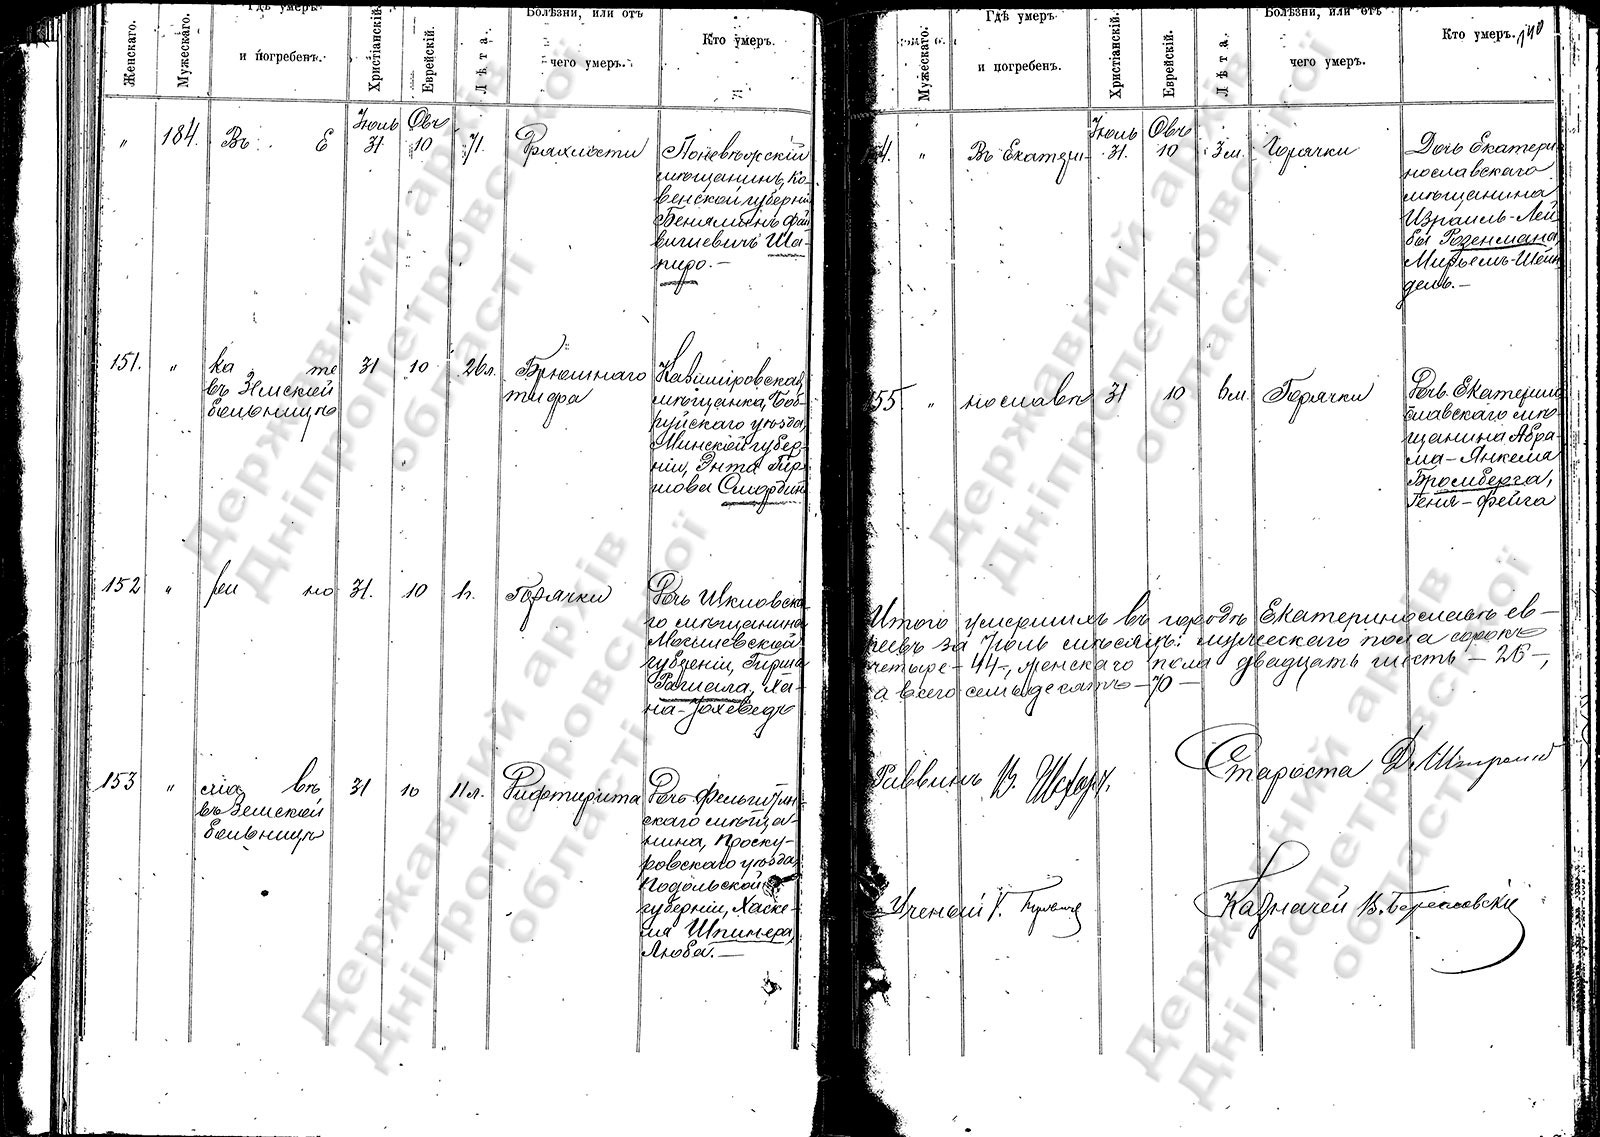 Женскаго.
Мужескаго.
Гдѣ умеръ
и погребенъ.
Христіанскій.
Еврейскій.
Лѣта.
Болѣзни, или отъ
чего умеръ.
Кто умеръ.
"
184.
Въ Е
Іюль
31
Овъ
10
71.
Дряхлости
Поневѣжскій
мѣщанинъ, Ко-
венской губерніи
Беніаминъ Фай
вишевичъ Ша-
пиро.—
151.
"
ка те
въ Земской
больницѣ
31
10
26 л.
Брюшнаго
тифа
Казимировская
мѣщанка, Боб-
руйскаго уѣзда,
Минской губер-
ніи, Энта Гир
шова Смордин
152
"
ри но
31.
10
Горячки
Дочь Шкловска-
го мѣщанина
Могилевской
губерніи, Гирша
Рагиала, Ха-
на-Іохеведъ
153
"
сла въ
въ Земской
больницѣ
31
10
11 л.
Дифтирита
Дочь Фельштин-
скаго мѣща-
нина, Проску-
ровскаго уѣзда,
Подольской
губерніи, Хаске-
ля Шпинера,
Люба.—
Мужескаго.
Гдѣ умеръ
и погребенъ.
Христіанскій.
Еврейскій.
Лѣта.
Болѣзни, или отъ
чего умеръ.
Кто умеръ.
140
54.
"
Въ Екатери-
Іюль
31.
Овъ
10
3 м.
Горячки
Дочь Екатери
нославскаго
мѣщанина
Израиль-Лей
бы Розенмана,
Мирьемъ-Шейн
дель.—
55.
"
нославѣ
31
10
6 м.
Горячки
Дочь Екатерино
славскаго мѣ-
щанина Абра-
ма-Янкеля
Бромберга,
Геня-Фейга
Итого умершихъ въ городѣ Екатеринославѣ ев-
реевъ за Іюль мѣсяцъ: мужескаго пола сорокъ
четыре — 44 —, женскаго пола двадцать шесть — 26 —,
а всего семьдесятъ — 70 —
Раввинъ В. Шахоръ.
Староста Д. Штромъ
Ученый Г.
Казначей В. Березовскій
Державний архів
Дніпропетровської
області
Державний архів
Дніпропетровської
області
Державний архів
Дніпропетровської
області
Державний архів
Дніпропетровської
області